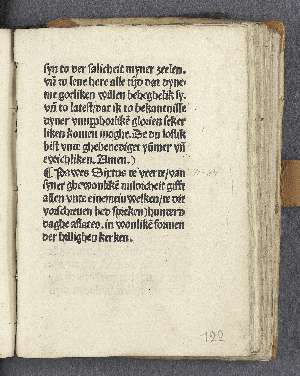 syn to der salicheit myner zeelen.
vñ to lone here alle tijd dat dyne
me gotliken willen behegheliſ sy.
vñ to lateſt dat ik to bekantniſſe
dyner
liken komen moghe. De du loflik
biſt vnde ghebenediget ymmer vñ
ewichliken. Amen.)
¶ Pawes Sixtus te veerte van
syner ghewonliken mildicheit gifft
allen vnde
vorſchreuen bed ſpreken hundert
daghe aflates. in wonlike formen
der hillighen kerken.
122